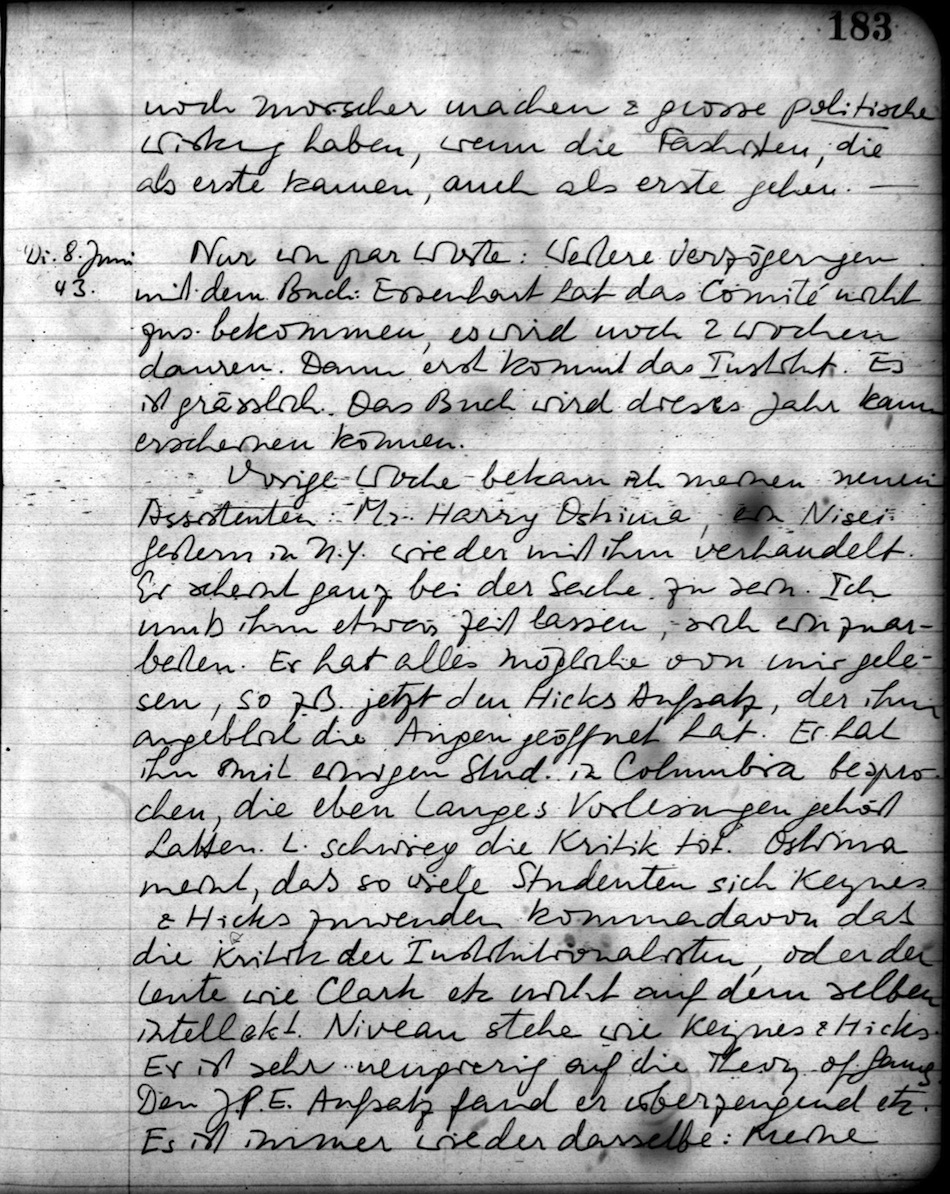 183
noch morscher machen & grosse politische
Wirkung haben, wenn die Fashisten, die
als erste kamen, auch als erste gehen. —
Di. 8. Juni
43.
Nur ein par Worte: Weitere Verzögerungen
mit dem Buch: Eisenhart hat das Comité nicht
zus. bekommen, es wird noch 2 Wochen
dauren. Dann erst kommt das Institut. Es
ist grässlich. Das Buch wird dieses Jahr kaum
erscheinen können.
Vorige Woche bekam ich meinen neuen
Assistenten: Mr. Harry Oshima, ein Nisei.
Gestern in N.Y. wieder mit ihm verhandelt.
Er scheint ganz bei der Sache zu sein. Ich
muß ihm etwas Zeit lassen, sich einzuar-
beiten. Er hat alles mögliche von mir gele-
sen, so z.B. jetzt den Hicks Aufsatz, der ihm
angeblich die Augen geöffnet hat. Er hat
ihn mit einigen Stud. in Columbia bespro-
chen, die eben Langes Vorlesungen gehört
hatten. L. schwieg die Kritik tot. Oshima
meint, daß so viele Studenten sich Keynes
& Hicks zuwenden komme davon daß
die Kritik der Institutionalisten, oder der
Leute wie Clark etc nicht auf dem selben
intellekt. Niveau stehe wie Keynes & Hicks.
Er ist sehr neugierig auf die Theory of Games
Den J.P.E. Aufsatz fand er überzeugend etc.
Es ist immer wieder dasselbe: Meine